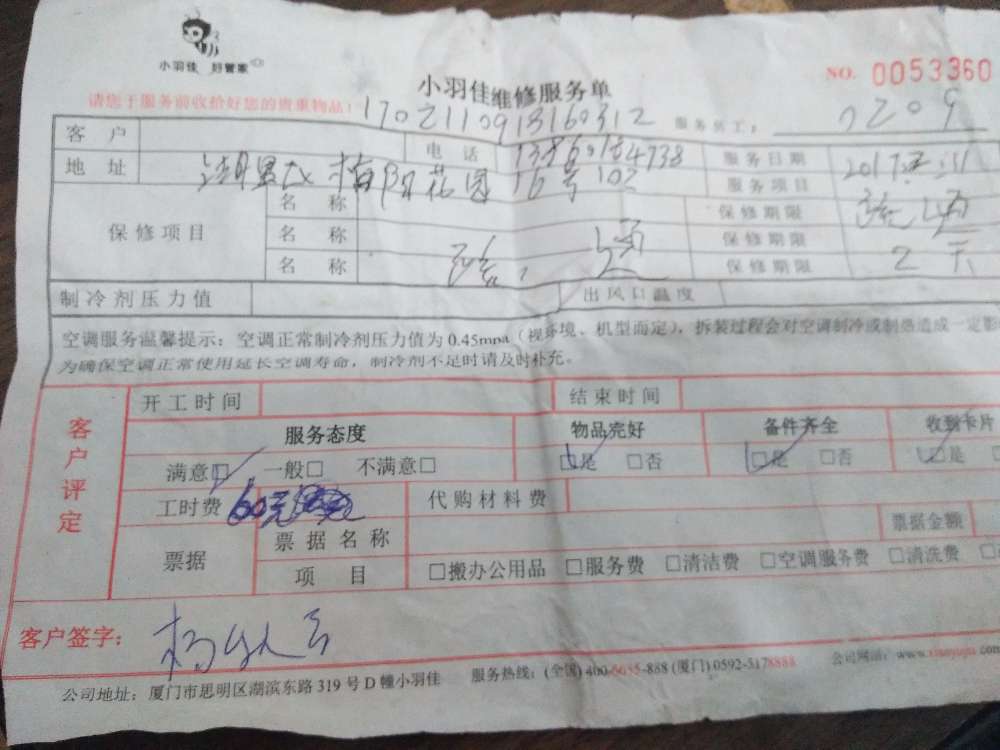 小羽佳 好管家
小羽佳维修服务单
NO. 0053360
请您于服务前收拾好您的贵重物品！
1702110913160312
服务员工： 0209
客 户 电 话 服务日期 2017
地 址 梅阳花园 16号102 服务项目
保修项目
名 称 保修期限
名 称 保修期限
名 称 保修期限 2天
制冷剂压力值 出风口温度
空调服务温馨提示：空调正常制冷剂压力值为0.45mpa（视环境、机型而定），拆装过程会对空调制冷或制热造成一定影
为确保空调正常使用延长空调寿命，制冷剂不足时请及时补充。
客户评定
开工时间 结束时间
服务态度 物品完好 备件齐全 收到卡片
满意□ 一般□ 不满意□ □是 □否 □是 □否 □是
工时费 60元 代购材料费
票据 票据名称 票据金额
项 目 □搬办公用品 □服务费 □清洁费 □空调服务费 □清洗费 □
客户签字：
公司地址：厦门市思明区湖滨东路319号D幢小羽佳 服务热线：(全国) 400-6655-888 (厦门) 0592-5178888 公司网站：www.xiaoyujia.com